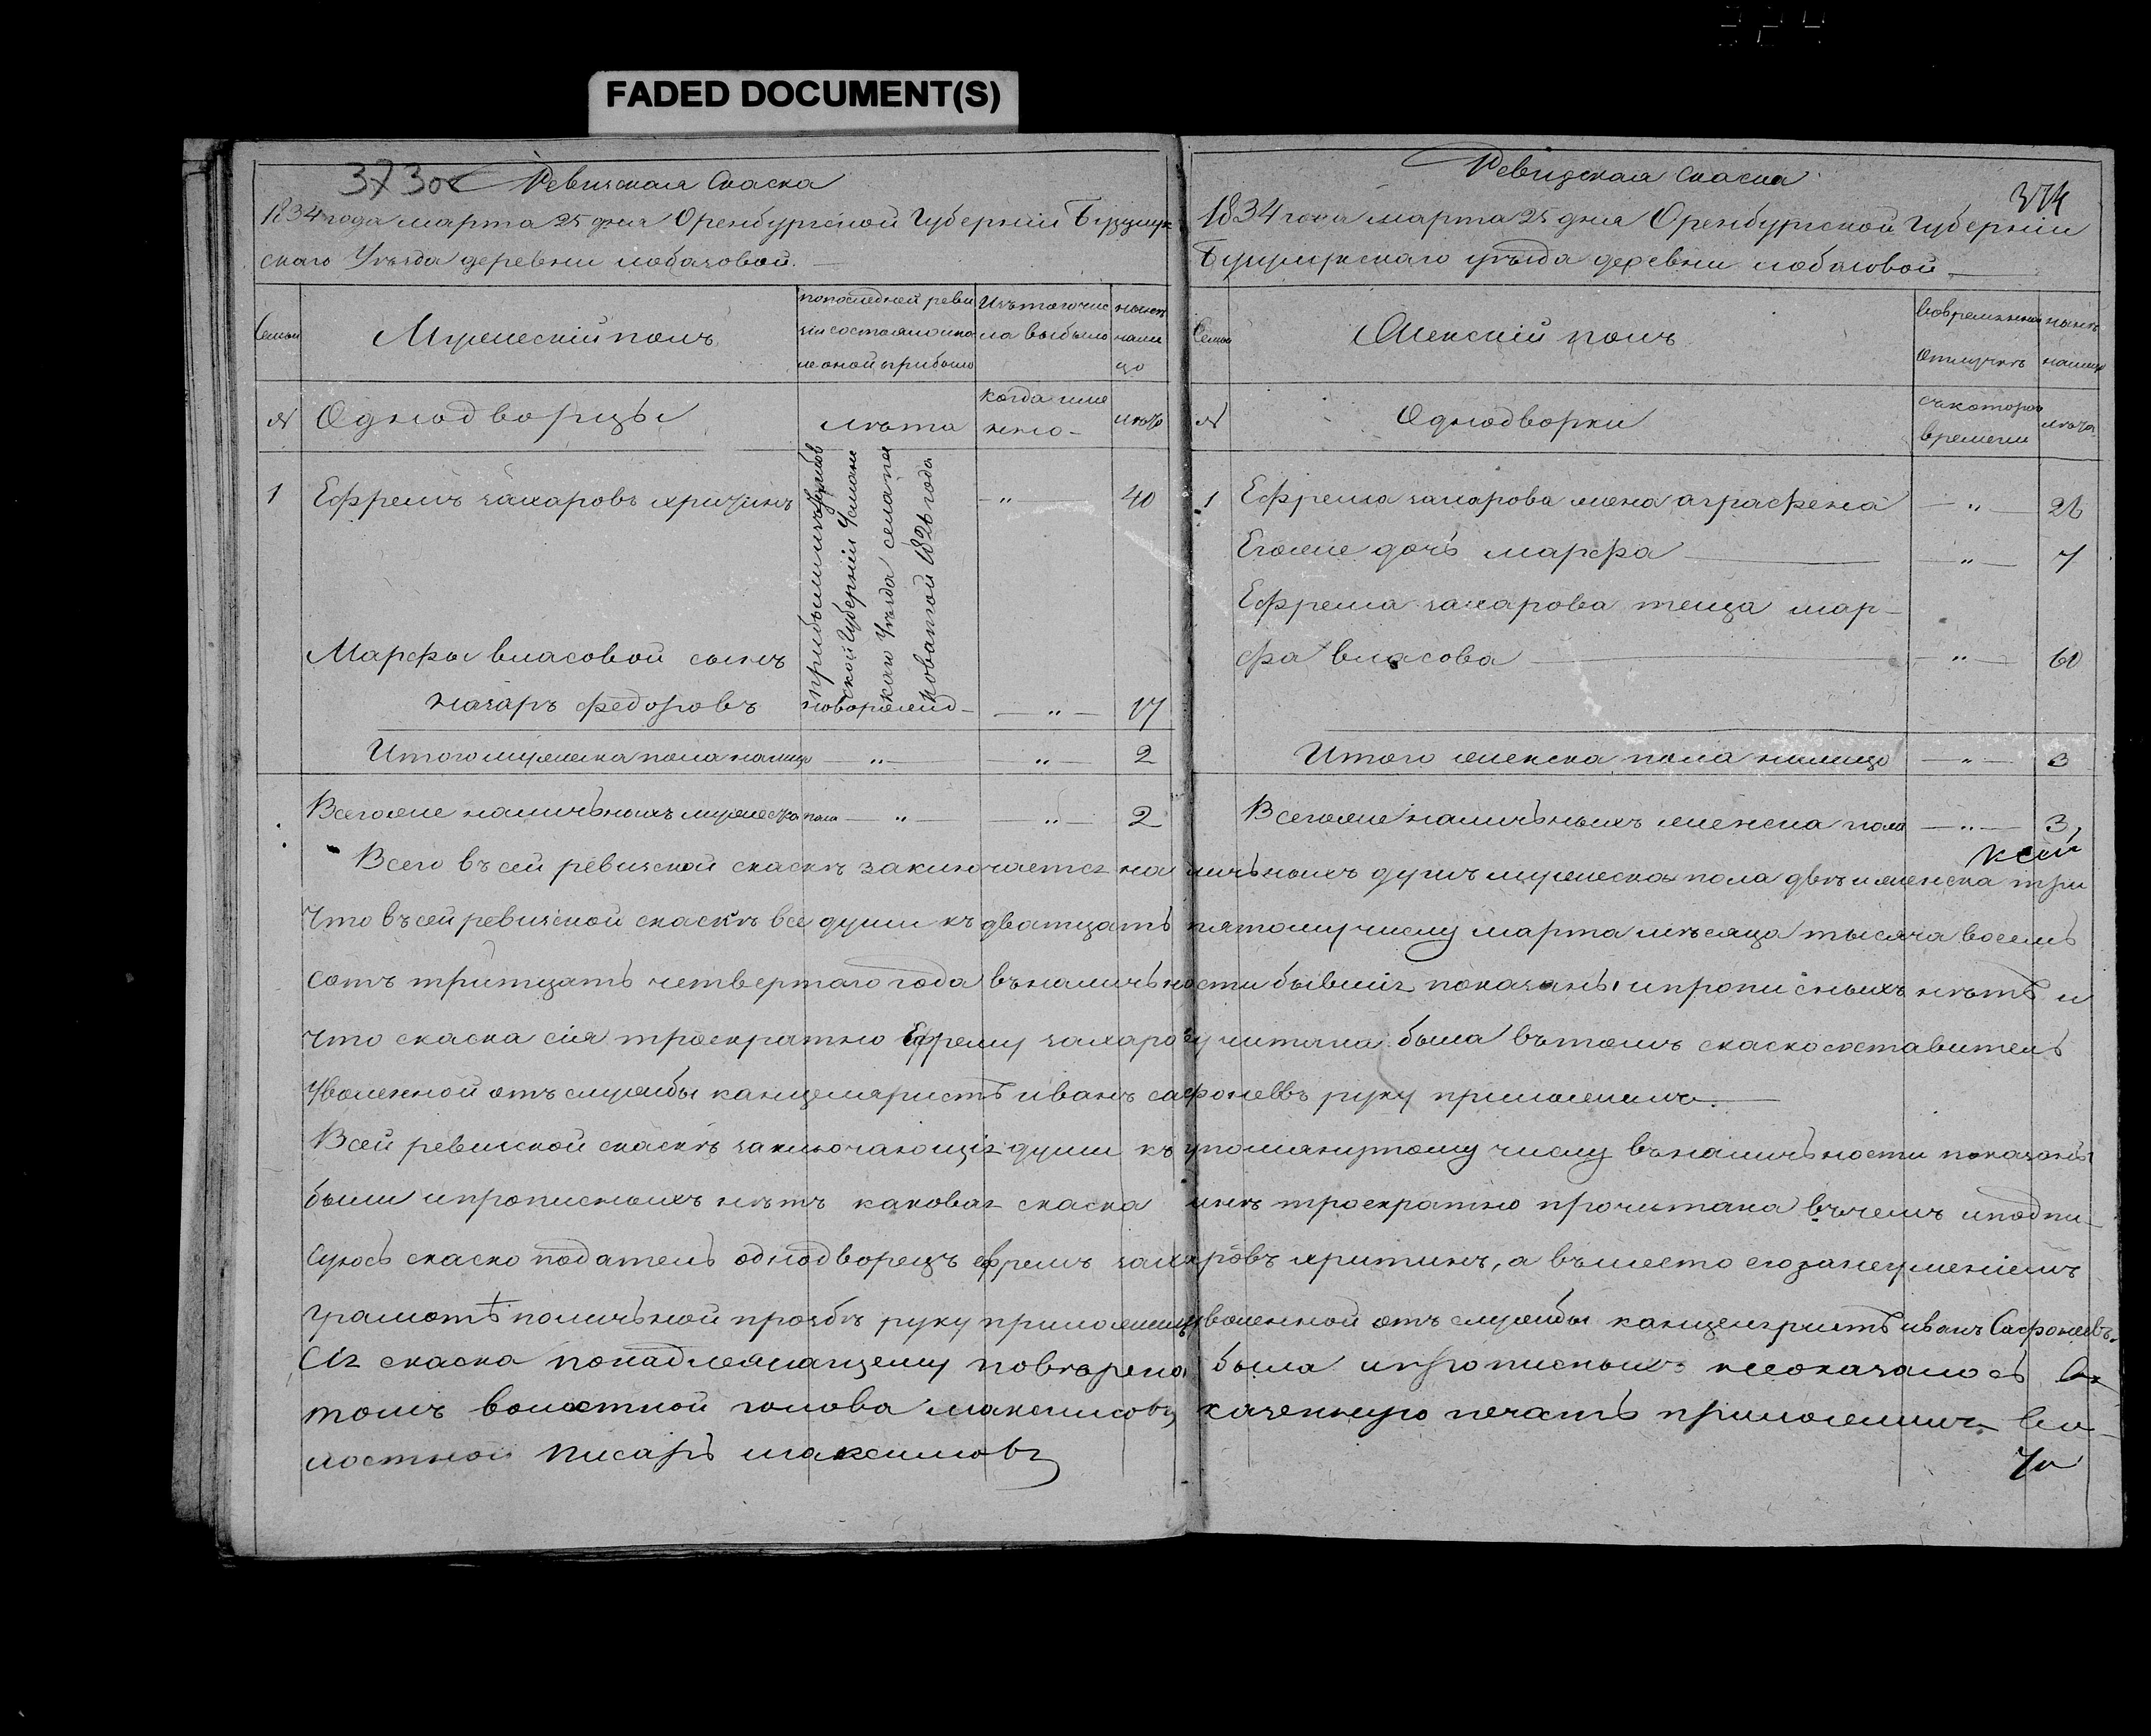 FADED DOCUMENT(S)
373 об
Ревизская Скаска
1834 года марта 25 дня Оренбургской Губернии Бузулук
скаго Уезда деревни лобазовой
Семьи
Мужеский полъ
попоследней реви
зіи состояло ипо
ле оной прибыло
Изътого чис
ла выбыло
ныне
нали
цо
№
Однодворцы
лета
когда име
нено
летъ
1 Ефремъ захаровъ хритинъ 40
прибылиизъ Тамбов
ской Губерніи Усмане
каго Уезда села па
коватой 1826 года
Марфы власовой сынъ
назаръ федоровъ новорожед „ 17
Итого мужеска пола налицо „ „ 2
Всегоже наличьныхъ мужеска пола „ „ 2
374
Ревизская скаска
1834 года марта 25 дня Оренбургской Губерніи
Бузулукскаго уезда деревни лобазовой
Семьи
Женскій полъ
вовременной
отлучке
ныне
налицо
№
Однодворки
скоторого
времени
лета
1 Ефрема захарова жена аграфена „ 26
Егоже дочь марфа „ 7
Ефрема захарова теща мар
фа власова „ 60
Итого женска пола налицо „ 3
Всегоже наличьныхъ женска пола „ 3
Всего въ сей ревизской скаске заключается наличьныхъ душъ мужеска пола две иженска три
Что въ сей ревизской скаске все души къ дватцать пятому числу марта месяца тысяча восемь
сотъ тритцать четвертаго года въналичьности бывшія показаны ипрописныхъ нетъ и
что скаска сия троекратно Ефрему захарову читана была вътомъ скаскосоставитель
Уволенной отъ службы канцеляристъ иванъ сафоневвъ руку приложилъ
Всей ревизской скаске заключающія души къ упомянутому числу въналичьности показаны
были ипрописныхъ нетъ каковая скаска мне троекратно прочитана вчемъ иподпи
суюсь скаско податель однодворецъ ефремъ захаровъ хритинъ, а въместо его занеуменіемъ
Грамоте поличьной прозбе руку приложилъ уволенной отъ службы канцеляристъ иванъ Сафонеевъ
Сія скаска понадлежащему поверена была ипрописныхъ неоказалось въ
томъ волостной голова максимовъ казенную печать приложилъ во
лостной писарь максимовъ